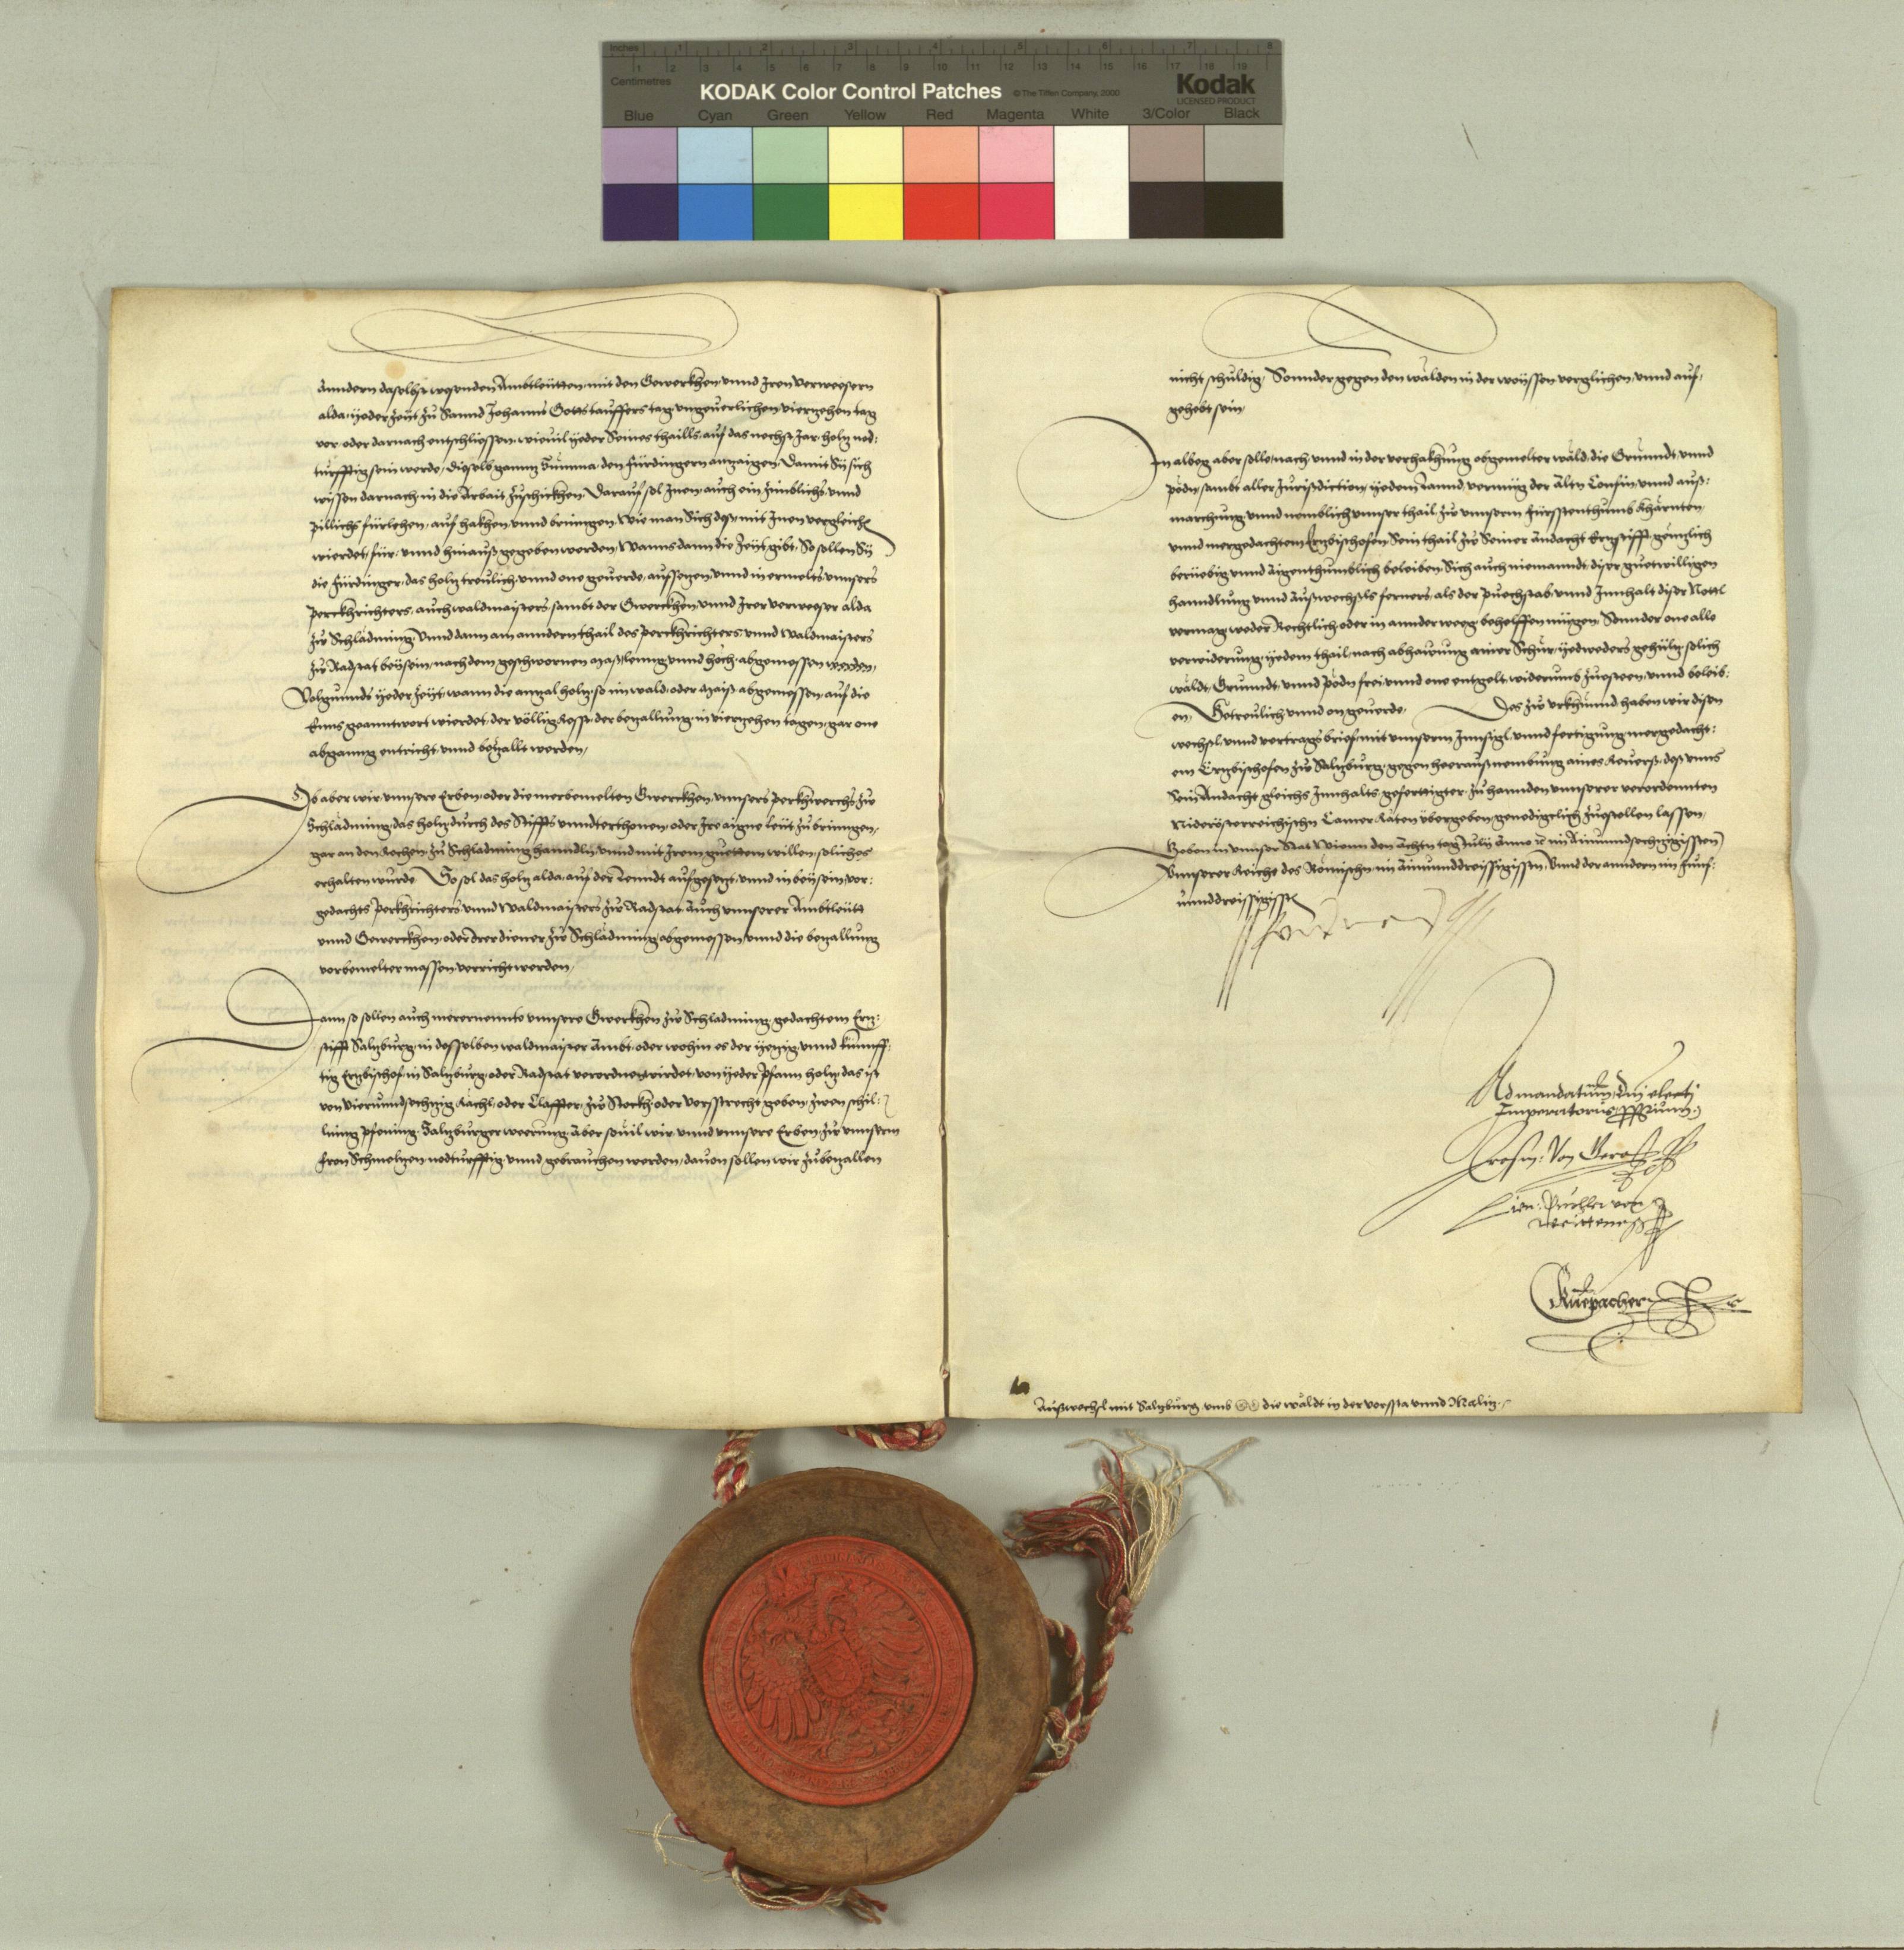 Inches 1 2 3 4 5 6 7 8
Centimetres 1 2 3 4 5 6 7 8 9 10 11 12 13 14 15 16 17 18 19
KODAK Color Control Patches © The Tiffen Company, 2000 Kodak
LICENSED PRODUCT
Blue Cyan Green Yellow Red Magenta White 3/Color Black
anndern daselbst wesenden Ambtleütten, mit den Gewerkhen, unnd Iren verwesern
alda, yeder Zeÿt zů Sannd Johanns Gotts tauffers tag ungeuerlichen viertzehen tag
vor oder darnach entschliessen, wieuil yeder Seines thaills, auf das nechst Jar, holtz nod:
turfftig sein werde, dieselb gannz Summa, den Fürdingern anzaigen, Damit Sÿ sich
wissen darnach in die Arbait zůschickhen. Darauf sol Inen, auch ein zimblichs, unnd
pillichs fürlehen, auf hakhen unnd bringen, Wie man Sich des, mit Inen vergleichen
wierdet, für: unnd hinauß gegeben werden, Wanns dann die Zeÿt gibt, So sollen Sÿ
die Fürdinger, das holtz treulich unnd one geuerde, aufsetzen, unnd in ermelts unnsers
Perckhrichters, auch waldmaisters, sambt der Gwerckhen, unnd Irer verweser alda
zů Schladming, unnd dann am anndern thail des Perckhrichters unnd Waldmaisters
zů Radstat beÿsein, nach dem geschwornen maß, leng unnd höch, abgemessen werden,
Volgunnds yeder Zeÿt, wann die anzal holtz, so im wald, oder maiß abgemessen, auf die
Enns geanntwort wierdet, der völlig Rest, der bezallung, in viertzehen tagen, gar one
abganng entricht, unnd bezallt werden,
Ob aber wir, unnsere Erben, oder die merbemelten Gwerckhen, unnsers Perckhwerchs zů
Schladming, das holtz, durch des Stiffts unndterthonen, oder Ire aigne leüt zů bringen,
gar an den Rechen, zů Schladming hanndln, unnd mit Irem guettem willen, solliches
erhalten wurde, So sol das holtz alda, auf der Lenndt aufgesetzt, unnd in beÿsein, vor:
gedachts Perckhrichters unnd Waldmaisters zů Radstat, Auch unnserer Ambtleüt
unnd Gewerckhen, oder Irer diener zů Schladming, abgemessen, unnd die bezallung
vorbemelter massen, verricht werden,
Dann so sollen auch merernennte unnsere Gwerckhen zů Schladming, gedachtem Ertz:
stifft Saltzburg, in desselben waldmaister Ambt, oder wohin es der yetzig, unnd künnff:
tig Ertzbischof in Saltzburg, oder Radstat verordnen wirdet, von yeder Pfann holtz, das ist
von vierunndsechtzig Rachl, oder Claffter, zů Stockh, oder Vorsstrecht geben, zwen schil:
ling pfening, Saltzburger weerung, Aber souil wir unnd unnsere Erben, zů unnserm
Fron Schmeltzen nodturfftig unnd gebrauchen werden, dauon sollen wir zůbezallen
nicht schuldig, Sonnder gegen den wälden in der weyssen verglichen, unnd auf,
gehebt sein,
In albeg aber solle, nach unnd in der verhakhung obgemelter wäld, die Grundt, unnd
Pödn, sambt aller Jurisdiction, yedem Lannd, vermüg der Altn Confin, unnd auß:
marchung, unnd nemblich unnser thail, zů unnserm Fürsstenthumb Khärnten,
unnd mergedachtem Ertzbischofen, Sein thail, zů Seiner Andacht Ertzstifft, gentzlich
berüebig unnd Aigenthumblich beleiben, Sich auch niemanndt, diser guetwilligen
hanndlung unnd Außwechsls ferners, als der Puechstab, unnd Innhalt diser Nottl
vermag, weder Rechtlich, oder in annder weeg, behelffen mügen, Sonnder one alle
verwiderung, yedem thail, nach abhauung ainer Schür, yedweders gehültz, solich
wäldt, Grunndt, unnd Pödn frei, unnd one entgelt, widerumb zuesteen, unnd beleib:
en, Getreulich unnd on geuerde, Des zů urkhund haben wir disen
wechsl, unnd vertrags brief, mit unnserm Innsigl, unnd fertigung, mergedacht:
em Ertzbischofen zů Saltzburg, gegen heeraußnembung aines Reuerß, des unns
Sein Andacht gleichs Innhalts gefertigter, zů hannden unnserer verordennten
Niderösterreichischn Camer Räten übergeben, genedigelich zuestellen lassen,
Geben in unnser Stat Wienn den Achtn tag Julÿ Anno &c im Ainundsechtzigissten
Unnserer Reiche des Römischn im Ainunnddreissigissten, unnd der anndern im Fünf:
unnddreissigissten
Ferdinand
Ad mandatum dni electi
Imperatoris proprium
Erasm: Von
Ruepacher
Außwechsl mit Saltzburg umb die wäldt in der